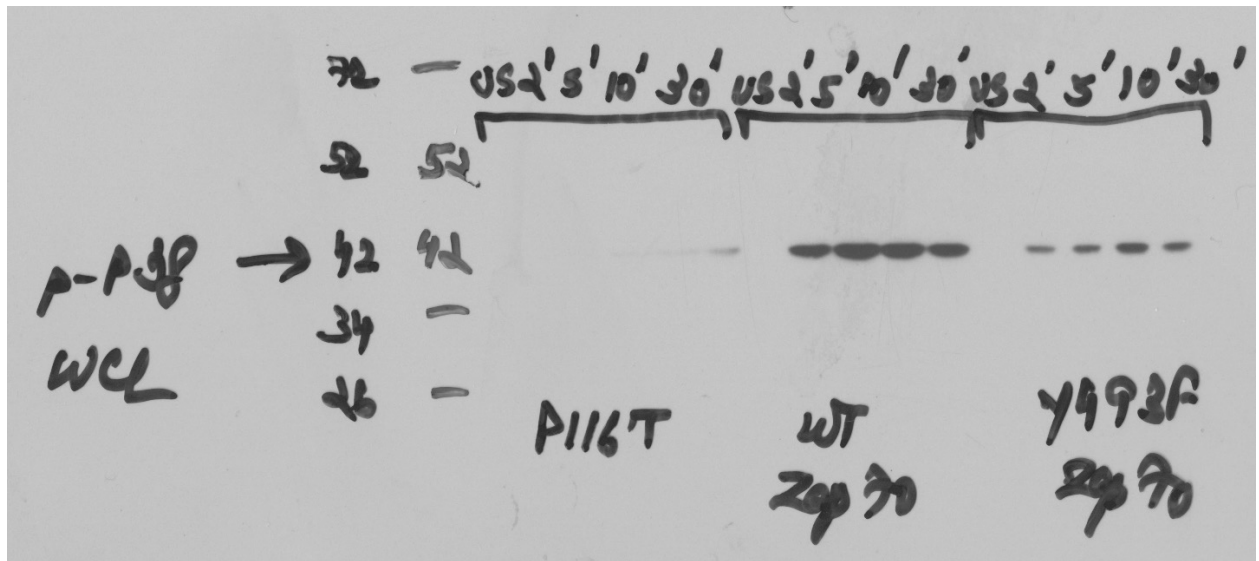 72 US 2' 5' 10' 30' US 2' 5' 10' 30' US 2' 5' 10' 30'
52 52
p-P38 → 42 42
34
WCL
26
P116T WT Y493F
Zap 70 Zap 70